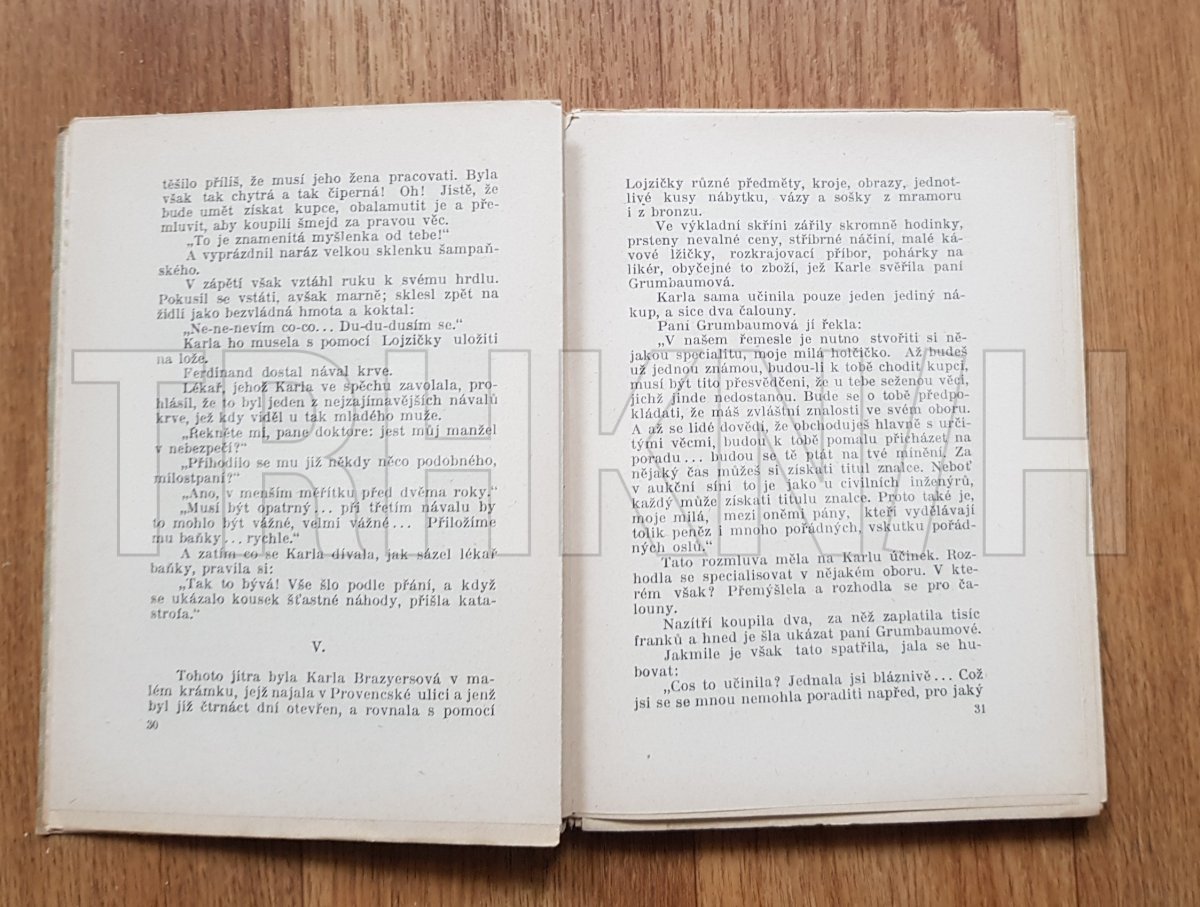 těšilo příliš, že musí jeho žena pracovati. Byla
však tak chytrá a tak čiperná! Oh! Jistě, že
bude umět získat kupce, obalamutit je a pře-
mluvit, aby koupili šmejd za pravou věc.
„To je znamenitá myšlenka od tebe!"
A vyprázdnil naráz velkou sklenku šampaň-
ského.
V zápětí však vztáhl ruku k svému hrdlu.
Pokusil se vstáti, avšak marně; sklesl zpět na
židli jako bezvládná hmota a koktal:
„Ne-ne-nevím co-co... Du-du-dusím se."
Karla ho musela s pomocí Lojzičky uložiti
na lože.
Ferdinand dostal nával krve.
Lékař, jehož Karla ve spěchu zavolala, pro-
hlásil, že to byl jeden z nejzajímavějších návalů
krve, jež kdy viděl u tak mladého muže.
„Řekněte mi, pane doktore: jest můj manžel
v nebezpečí?"
„Přihodilo se mu již někdy něco podobného,
milostpaní?"
„Ano, v menším měřítku před dvěma roky."
„Musí být opatrný... při třetím návalu by
to mohlo být vážné, velmi vážné... Přiložíme
mu baňky... rychle."
A zatím co se Karla dívala, jak sázel lékař
baňky, pravila si:
„Tak to bývá! Vše šlo podle přání, a když
se ukázalo kousek šťastné náhody, přišla kata-
strofa."
V.
Tohoto jitra byla Karla Brazyersová v ma-
lém krámku, jejž najala v Provencské ulici a jenž
byl již čtrnáct dní otevřen, a rovnala s pomocí
30
Lojzičky různé předměty, kroje, obrazy, jednot-
livé kusy nábytku, vázy a sošky z mramoru
i z bronzu.
Ve výkladní skříni zářily skromně hodinky,
prsteny nevalné ceny, stříbrné náčiní, malé ká-
vové lžičky, rozkrajovací příbor, pohárky na
likér, obyčejné to zboží, jež Karle svěřila paní
Grumbaumová.
Karla sama učinila pouze jeden jediný ná-
kup, a sice dva čalouny.
Paní Grumbaumová jí řekla:
„V našem řemesle je nutno stvořiti si ně-
jakou specialitu, moje milá holčičko. Až budeš
už jednou známou, budou-li k tobě chodit kupci,
musí být tito přesvědčeni, že u tebe seženou věci,
jichž jinde nedostanou. Bude se o tobě předpo-
kládati, že máš zvláštní znalosti ve svém oboru.
A až se lidé dovědí, že obchoduješ hlavně s urči-
tými věcmi, budou k tobě pomalu přicházet na
poradu... budou se tě ptát na tvé mínění. Za
nějaký čas můžeš si získati titul znalce. Neboť
v aukční síni to je jako u civilních inženýrů,
každý může získati titulu znalce. Proto také je,
moje milá, mezi oněmi pány, kteří vydělávají
tolik peněz i mnoho pořádných, vskutku pořád-
ných oslů."
Tato rozmluva měla na Karlu účinek. Roz-
hodla se specialisovat v nějakém oboru. V kte-
rém však? Přemýšlela a rozhodla se pro ča-
louny.
Nazítří koupila dva, za něž zaplatila tisíc
franků a hned je šla ukázat paní Grumbaumové.
Jakmile je však tato spatřila, jala se hu-
bovat:
„Cos to učinila? Jednala jsi bláznivě... Což
jsi se se mnou nemohla poraditi napřed, pro jaký
31
TRHKNIH